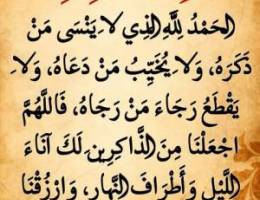 الحَمْدُ لِلَّهِ الَّذِي لاَ يَنْسَى مَنْ
ذَكَرَهُ، وَلاَ يُخَيِّبُ مَنْ دَعَاهُ، وَلاَ
يَقْطَعُ رَجَاءَ مَنْ رَجَاهُ، فَاللَّهُمَّ
اجْعَلْنَا مِنَ الذَّاكِرِينَ لَكَ آنَاءَ
اللَّيْلِ وَأَطْرَافَ النَّهَارِ، وَارْزُقْنَا